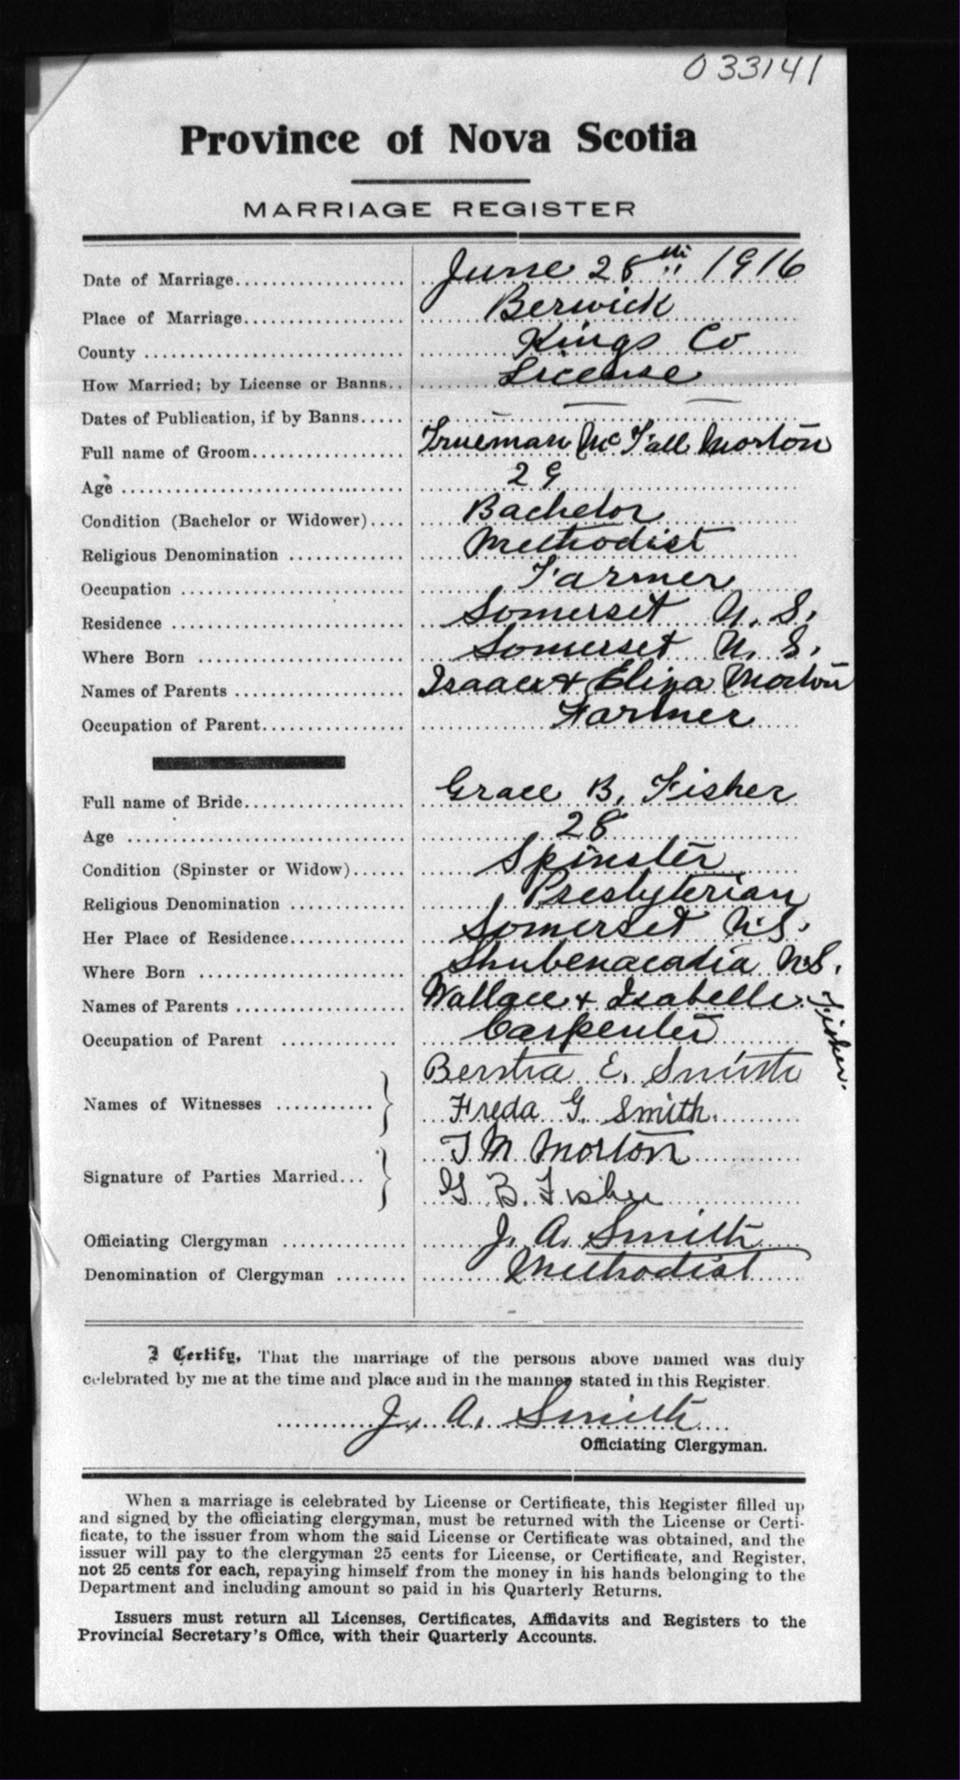 033141
Province of Nova Scotia
MARRIAGE REGISTER
Date of Marriage.................... June 28th 1916
Place of Marriage................... Berwick
County ............................. Kings Co
How Married; by License or Banns.. License
Dates of Publication, if by Banns..... — — —
Full name of Groom.................. Trueman McFall Morton
Age ................................ 29
Condition (Bachelor or Widower).... Bachelor
Religious Denomination ............. Methodist
Occupation ......................... Farmer
Residence .......................... Somerset N. S.
Where Born ......................... Somerset N. S.
Names of Parents ................... Isaac & Eliza Morton
Occupation of Parent................ Farmer
Full name of Bride.................. Grace B. Fisher
Age ................................ 28
Condition (Spinster or Widow)...... Spinster
Religious Denomination ............. Presbyterian
Her Place of Residence............. Somerset N.S.
Where Born ......................... Shubenacadia N.S.
Names of Parents ................... Wallace & Isabelle Fisher.
Occupation of Parent ............. Carpenter
Names of Witnesses ........... } E. Smith
Freda G. Smith.
Signature of Parties Married... } T M Morton
G. B. Fisher
Officiating Clergyman .............. J. A. Smith
Denomination of Clergyman ........ Methodist
I Certify, That the marriage of the persons above named was duly
celebrated by me at the time and place and in the manner stated in this Register.
J. A. Smith
Officiating Clergyman.
When a marriage is celebrated by License or Certificate, this Register filled up
and signed by the officiating clergyman, must be returned with the License or Certi-
ficate, to the issuer from whom the said License or Certificate was obtained, and the
issuer will pay to the clergyman 25 cents for License, or Certificate, and Register,
not 25 cents for each, repaying himself from the money in his hands belonging to the
Department and including amount so paid in his Quarterly Returns.
Issuers must return all Licenses, Certificates, Affidavits and Registers to the
Provincial Secretary's Office, with their Quarterly Accounts.